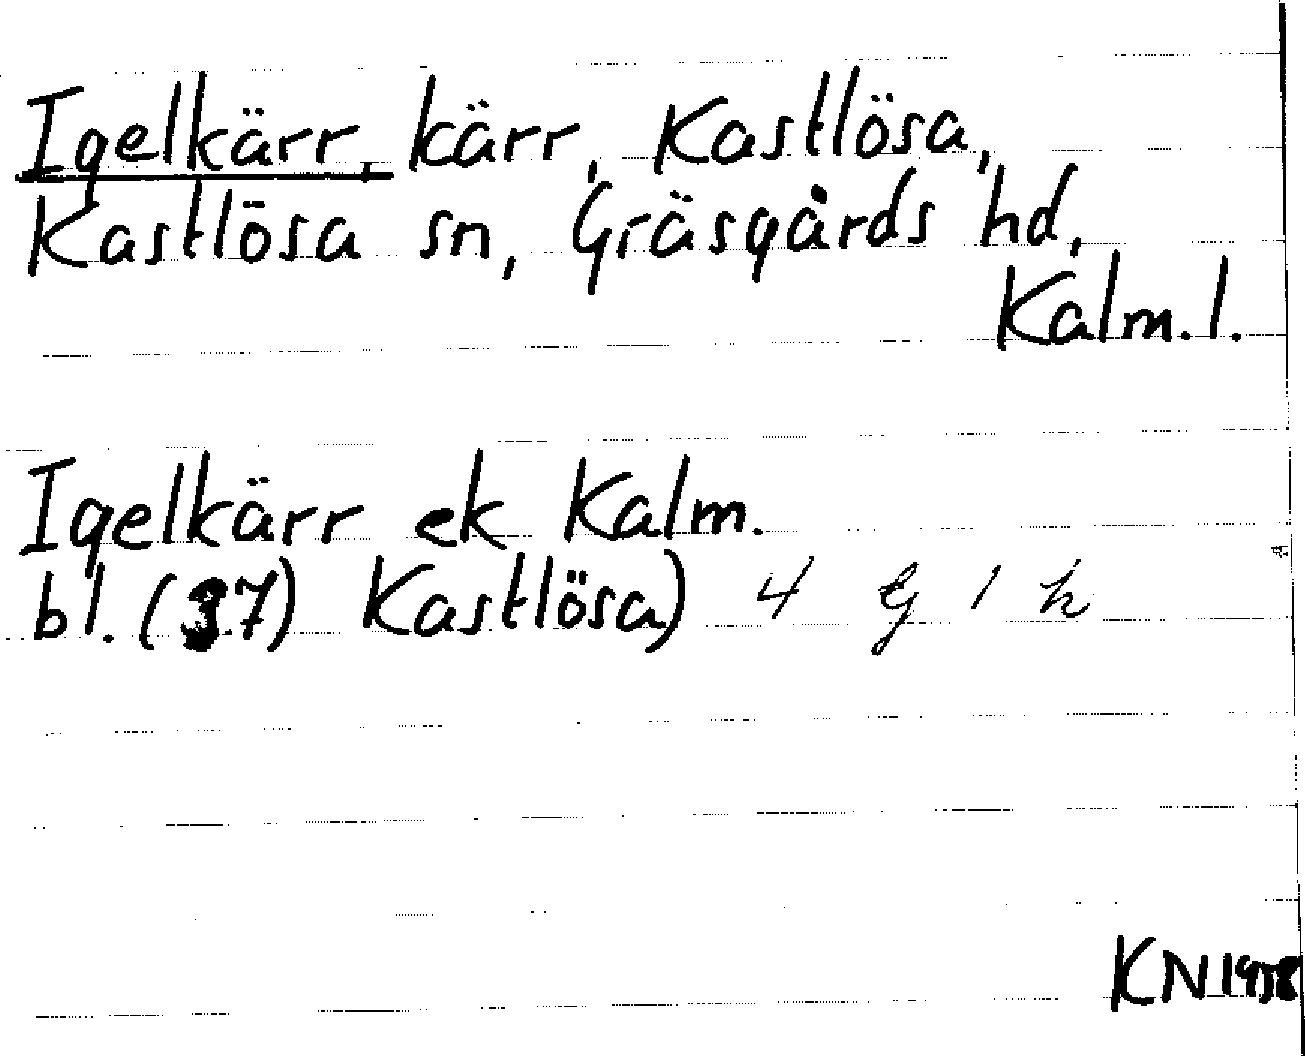 Igelkärr, kärr, Kastlösa,
Kastlösa sn, Gräsgårds hd,
Kalm. l.
Igelkärr ek Kalm.
bl. (37) Kastlösa) 4 G 1 h
KN 1958